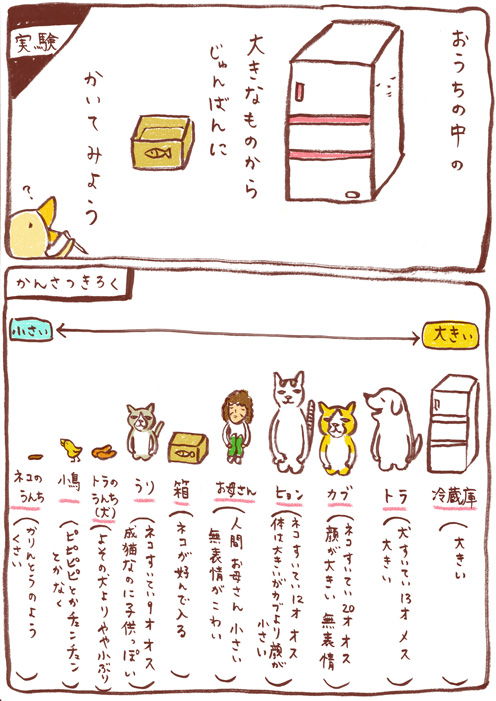 実験
おうちの中の
大きなものから
じゅんばんに
かいてみよう
?
かんさつきろく
小さい
大きい
冷蔵庫
(大きい)
トラ
(犬すいてい13才メス
大きい)
カブ
(ネコすいてい20才オス
顔が大きい 無表情)
ヒョン
(ネコすいてい12才オス
体は大きいがカブより顔が
小さい)
お母さん
(人間 お母さん 小さい
無表情がこわい)
箱
(ネコが好んで入る)
うり
(ネコすいてい9才オス
成猫なのに子供っぽい)
トラの
うんち
(犬)
(よその犬よりやや小ぶり)
小鳥
(ピピピピとかチュンチュン
とかなく)
ネコの
うんち
(かりんとうのよう
くさい)